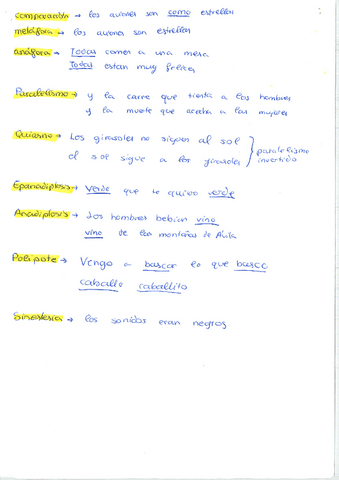 comparación → los aviones son como estrellas
metáfora → los aviones son estrellas
anáfora → Todas comes a una mesa
Todas estan muy frites
Paralelismo → y la carne que tienta a los hombres
y la muerte que acecha a las mujeres
Quiasmo → Los girasoles no siguen al sol
el sol sigue a los girasoles } paralelismo invertido
Epanadiplosis → verde que te quiero verde
Anadiplosis → dos hombres bebían vino
vino de las montañas de Ávila
Polipote → Vengo a buscar lo que busco
caballo caballito
Sinestesia → los sonidos eran negros